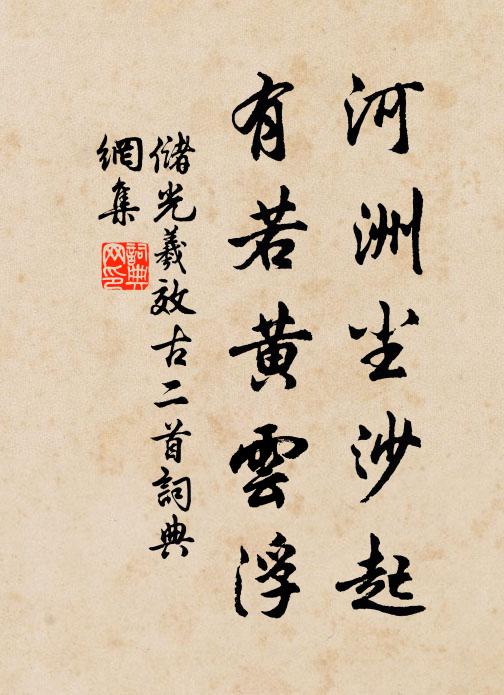 河洲尘沙起
有若黄雲浮
儲光羲效古二首詞典
網集
詞典网印